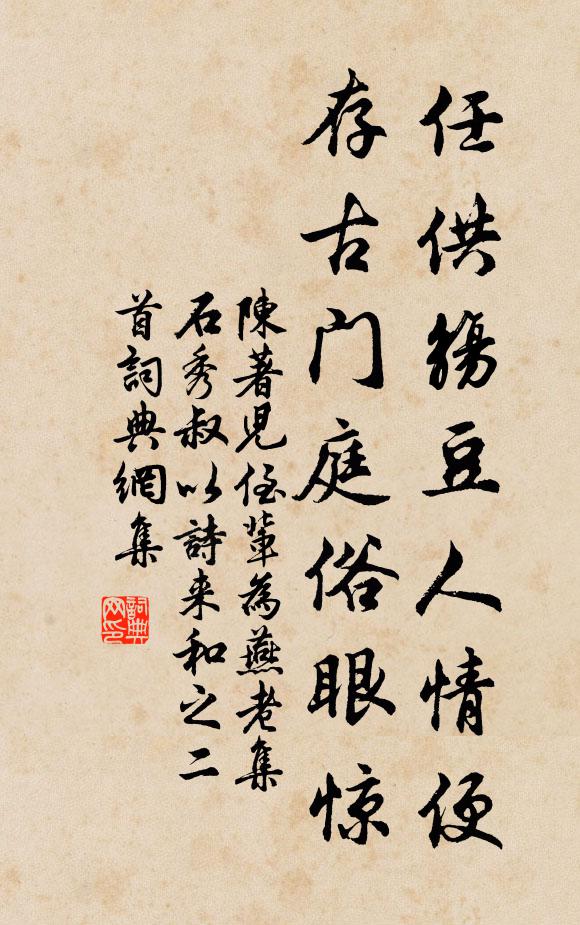 任供觴豆人情便
存古门庭俗眼惊
陳著兒侄輩為燕老集
石秀叔以詩来和之二
首詞典網集
詞典网印